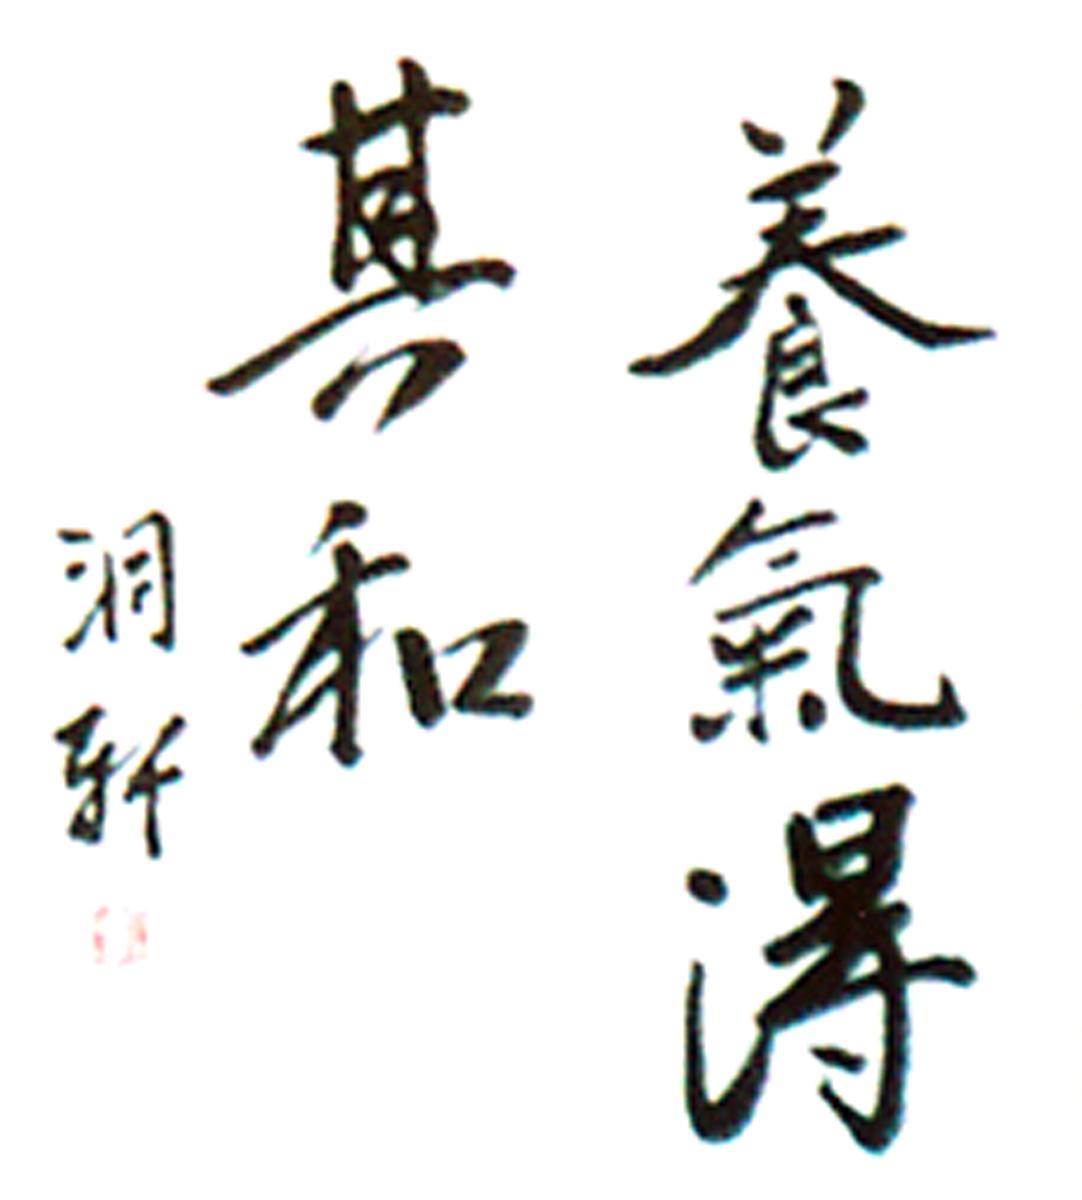 養氣得
其和
洞軒